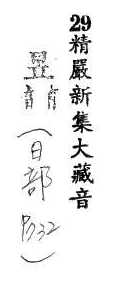 29精嚴新集大藏音
(日部
P32)